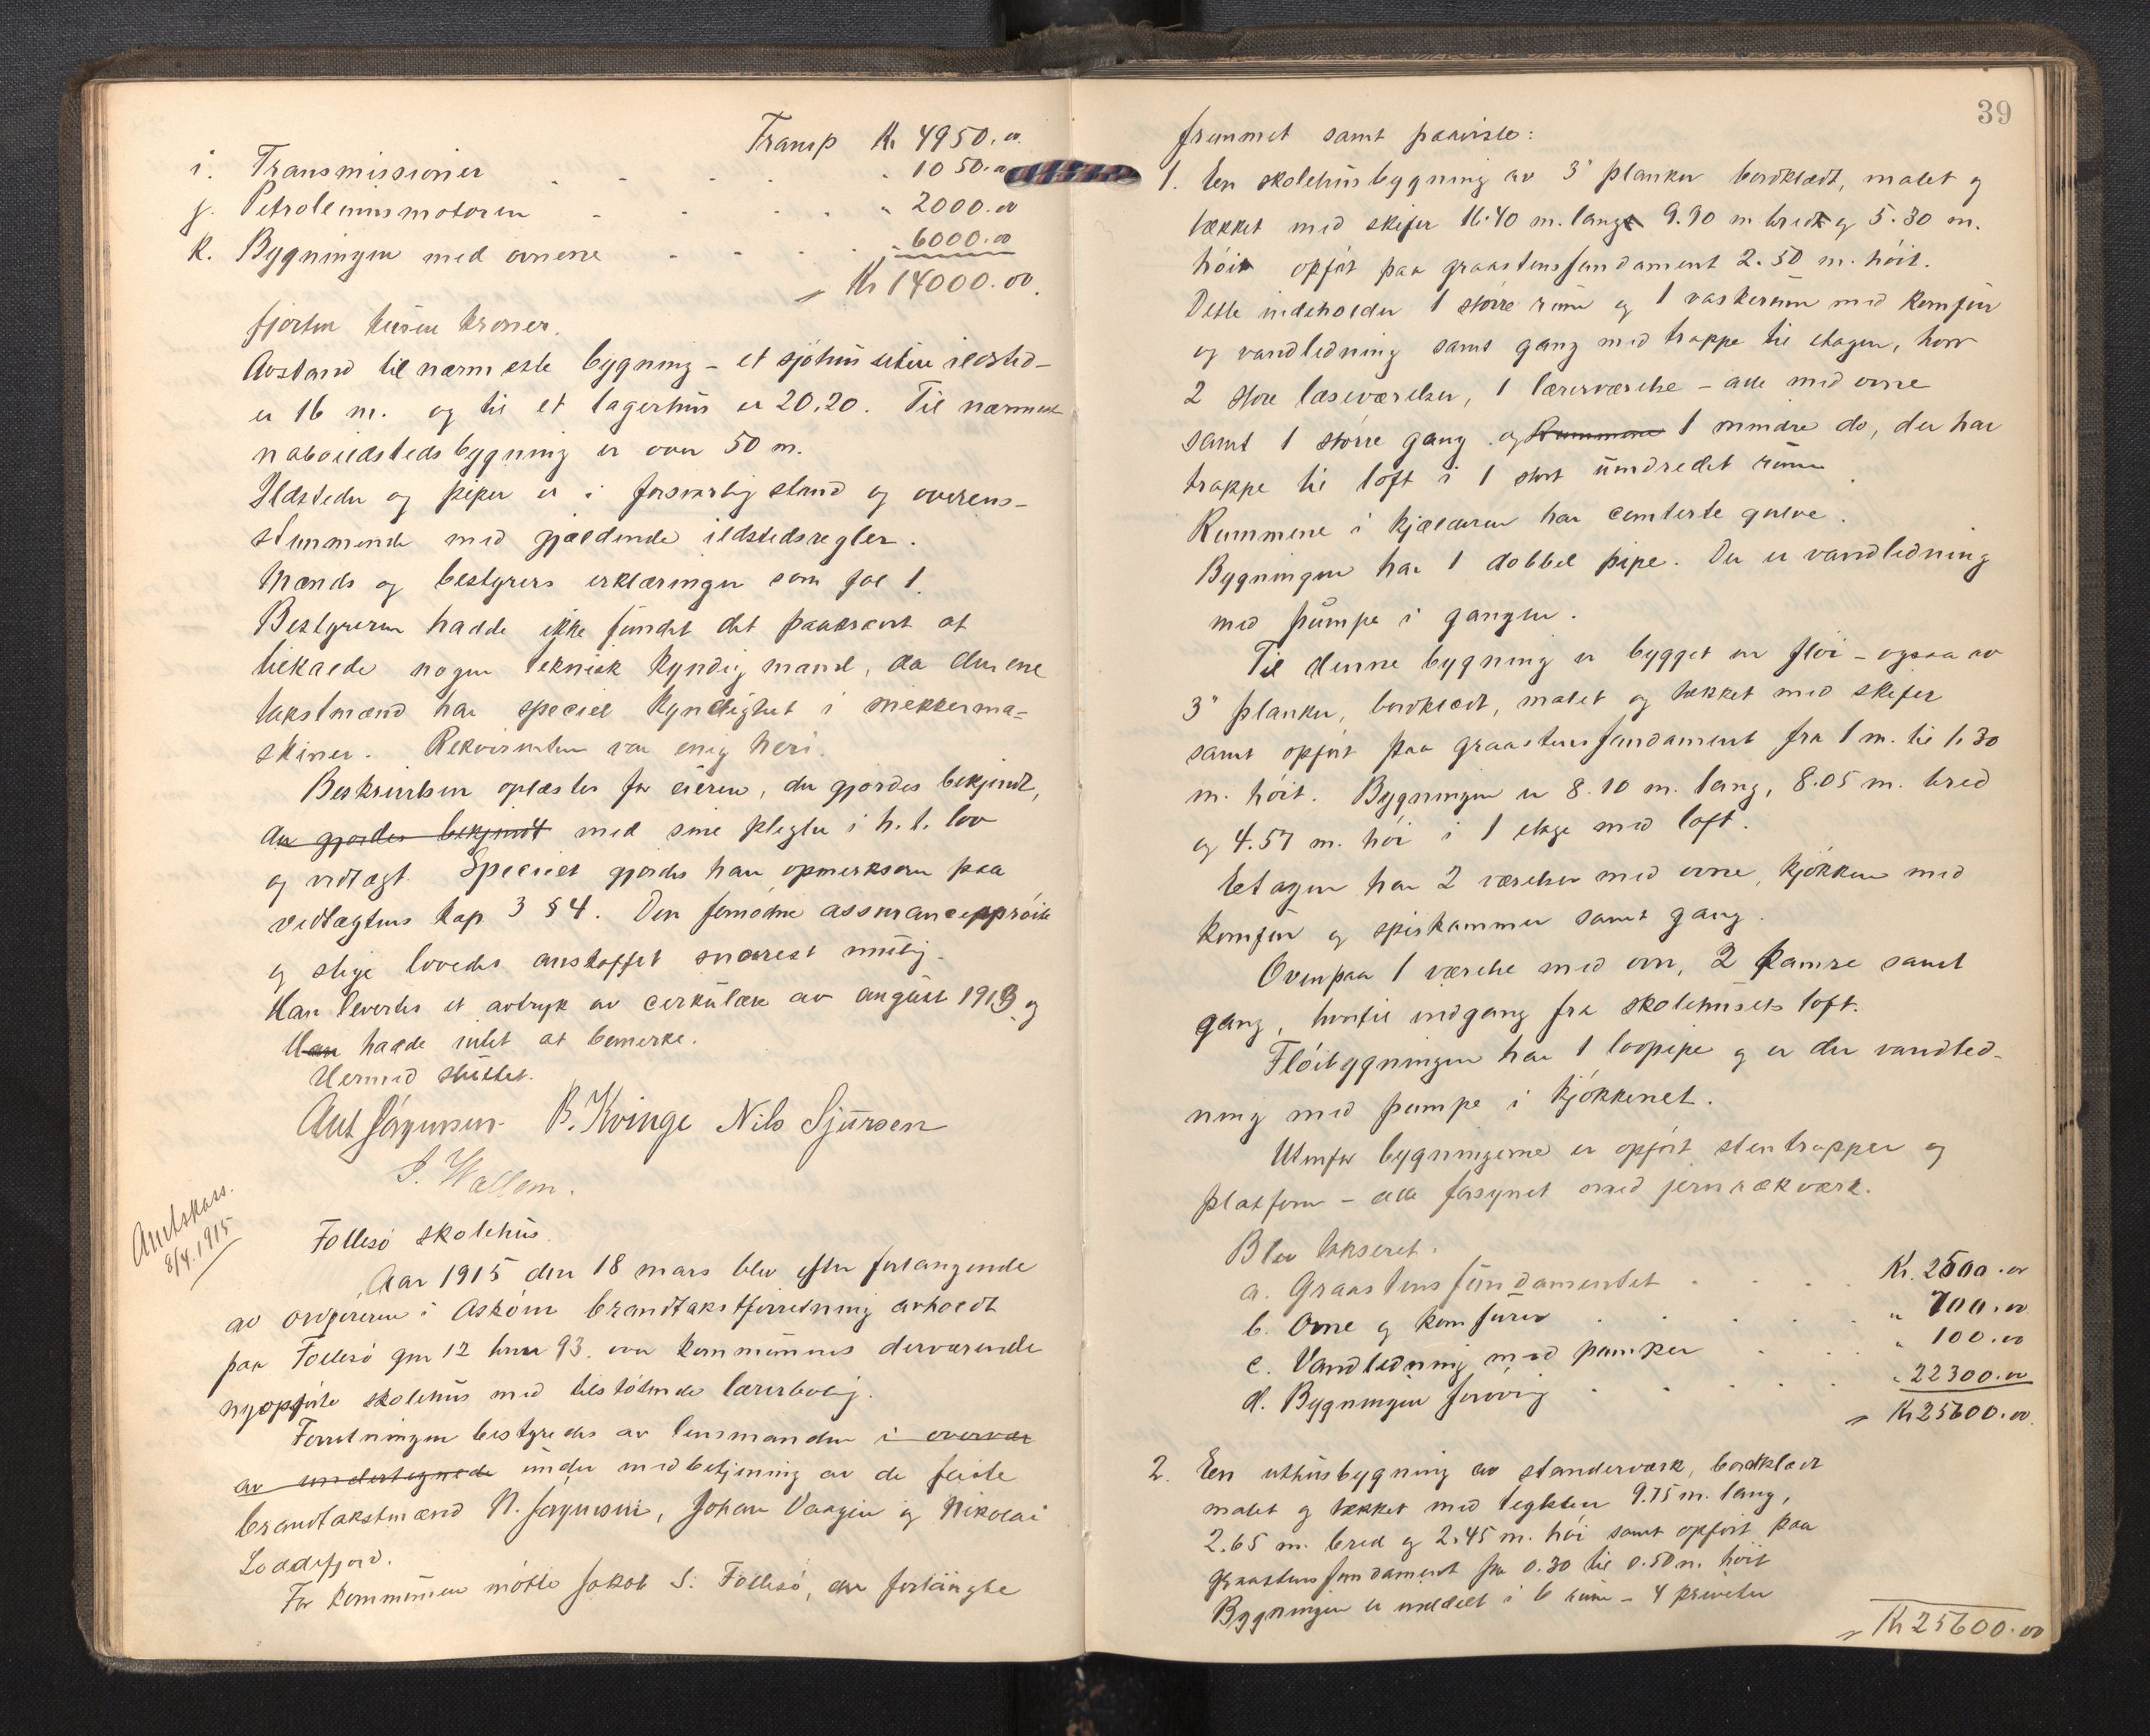 Transp Kr 4950.00
i. Transmissioner - - - - " 1050.00
j. Petroleumsmotoren - - - - " 2000.00
k. Bygningen med ovnene - - - - " 6000.00
Kr 14000.00.
fjorten tusen kroner.
Avstand til nærmeste bygning - et sjøhus uten ildsted -
er 16 m. og til et lagerhus er 20,20. Til nærmeste
naboildstedsbygning er over 50 m.
Ildsteder og piper er i forsvarlig stand og overens-
stemmende med gjældende ildstedsregler.
Mænds og bestyrers erklæringer som fol 1.
Bestyreren hadde ikke fundet det paakrævt at
tilkalde nogen teknisk kyndig mand, da den ene
takstmænd har speciel kyndighet i snekkerma-
skiner. Rekvirenten var enig heri.
Beskrivelsen oplæstes for eieren, der gjordes bekjendt,
der gjordes bekjendt med sine plegter i h. t. lov
og vedtægt. Specielt gjordes han opmerksom paa
vedtægtens kap 3 § 4. Den fornødne assurancesprøite
og stige lovedes anskaffet snarest mulig.
Han leverdes et avtryk av cirkulære av august 1913 og
Han hadde intet at bemerke.
Hermed sluttet.
Ant Jørgensen B. Kvinge Nils Sjursen
S. Wallem.
Amtskass.
8/4.1915
Follesø skolehus.
Aar 1915 den 18 mars blev efter forlangende
av ordføreren i Askøen brandtakstforretning avholdt
paa Follesø gnr 12 bnr 93. over kommunens derværende
nyopførte skolehus med tilstøtende lærerbolig.
Forretningen bestyredes av lensmanden i overvær
av undertegnede under medbetjening av de faste
brandtakstmænd N. Jørgensen, Johan Vaagen og Nikolai
Loddefjord.
For kommunen møtte Jakob S. Follesø, der forlangte
39
fremmet samt paaviste:
1. Een skolehusbygning av 3" planker bordklædt, malet og
tækket med skifer 16.40 m. lang 9.90 m bred og 5.30 m.
høi opført paa graastensfundament 2.50 m. høit.
Dette indeholder 1 større rum og 1 vaskerum med komfur
og vandledning samt gang med trappe til etagen, hvor
2 store læseværelser, 1 lærerværelse - alle med ovne
samt 1 større gang og Rummene 1 mindre do, der har
trappe til loft i 1 stort uindredet rum.
Rummene i kjælderen har cemterte gulve.
Bygningen har 1 dobbel pipe. Der er vandledning
med pumpe i gangen.
Til denne bygning er bygget en fløi - ogsaa av
3" planker, bordklædt, malet og tækket med skifer
samt opført paa graastensfundament fra 1 m. til 1.30
m. høit. Bygningen er 8.10 m. lang, 8.05 m. bred
og 4.57 m. høi i 1 etage med loft.
Etagen har 2 værelser med ovne, kjøkken med
komfur og spiskammer samt gang.
Ovenpaa 1 værelse med ovn, 2 kamre samt
gang, hvortil indgang fra skolehusets loft.
Fløibygningen har 1 løvpipe og er der vandled-
ning med pumpe i kjøkkenet.
Utenfor bygningerne er opført stentrapper og
platform - alle forsynet med jernrækværk.
Blev takseret.
a. Graastensfundamentet . . . . Kr. 2500.00
b. Ovne og komfurer . . . . " 700.00
c. Vandledning med pumper . . . " 100.00
d. Bygningen forøvrig . . . . " 22300.00
Kr 25600.00.
2. Een uthusbygning av standerværk, bordklædt
malet og tækket med teglsten 9.75 m. lang,
2.65 m. bred og 2.45 m. høi samt opført paa
graastensfundament fra 0.30 til 0.50 m. høit
Bygningen er inddelt i 6 rum - 4 priveter
Kr 25600.00